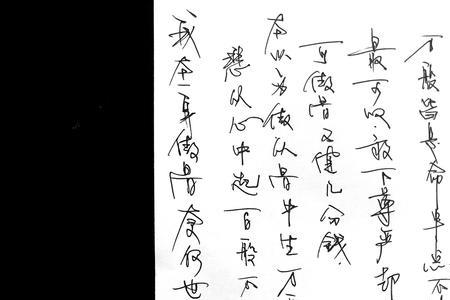 万般皆是命半点不
最可以放下尊严却
可傲骨又值几分钱
本以为傲从骨中生万
愁从心中起百般不
我本一身傲骨奈何世